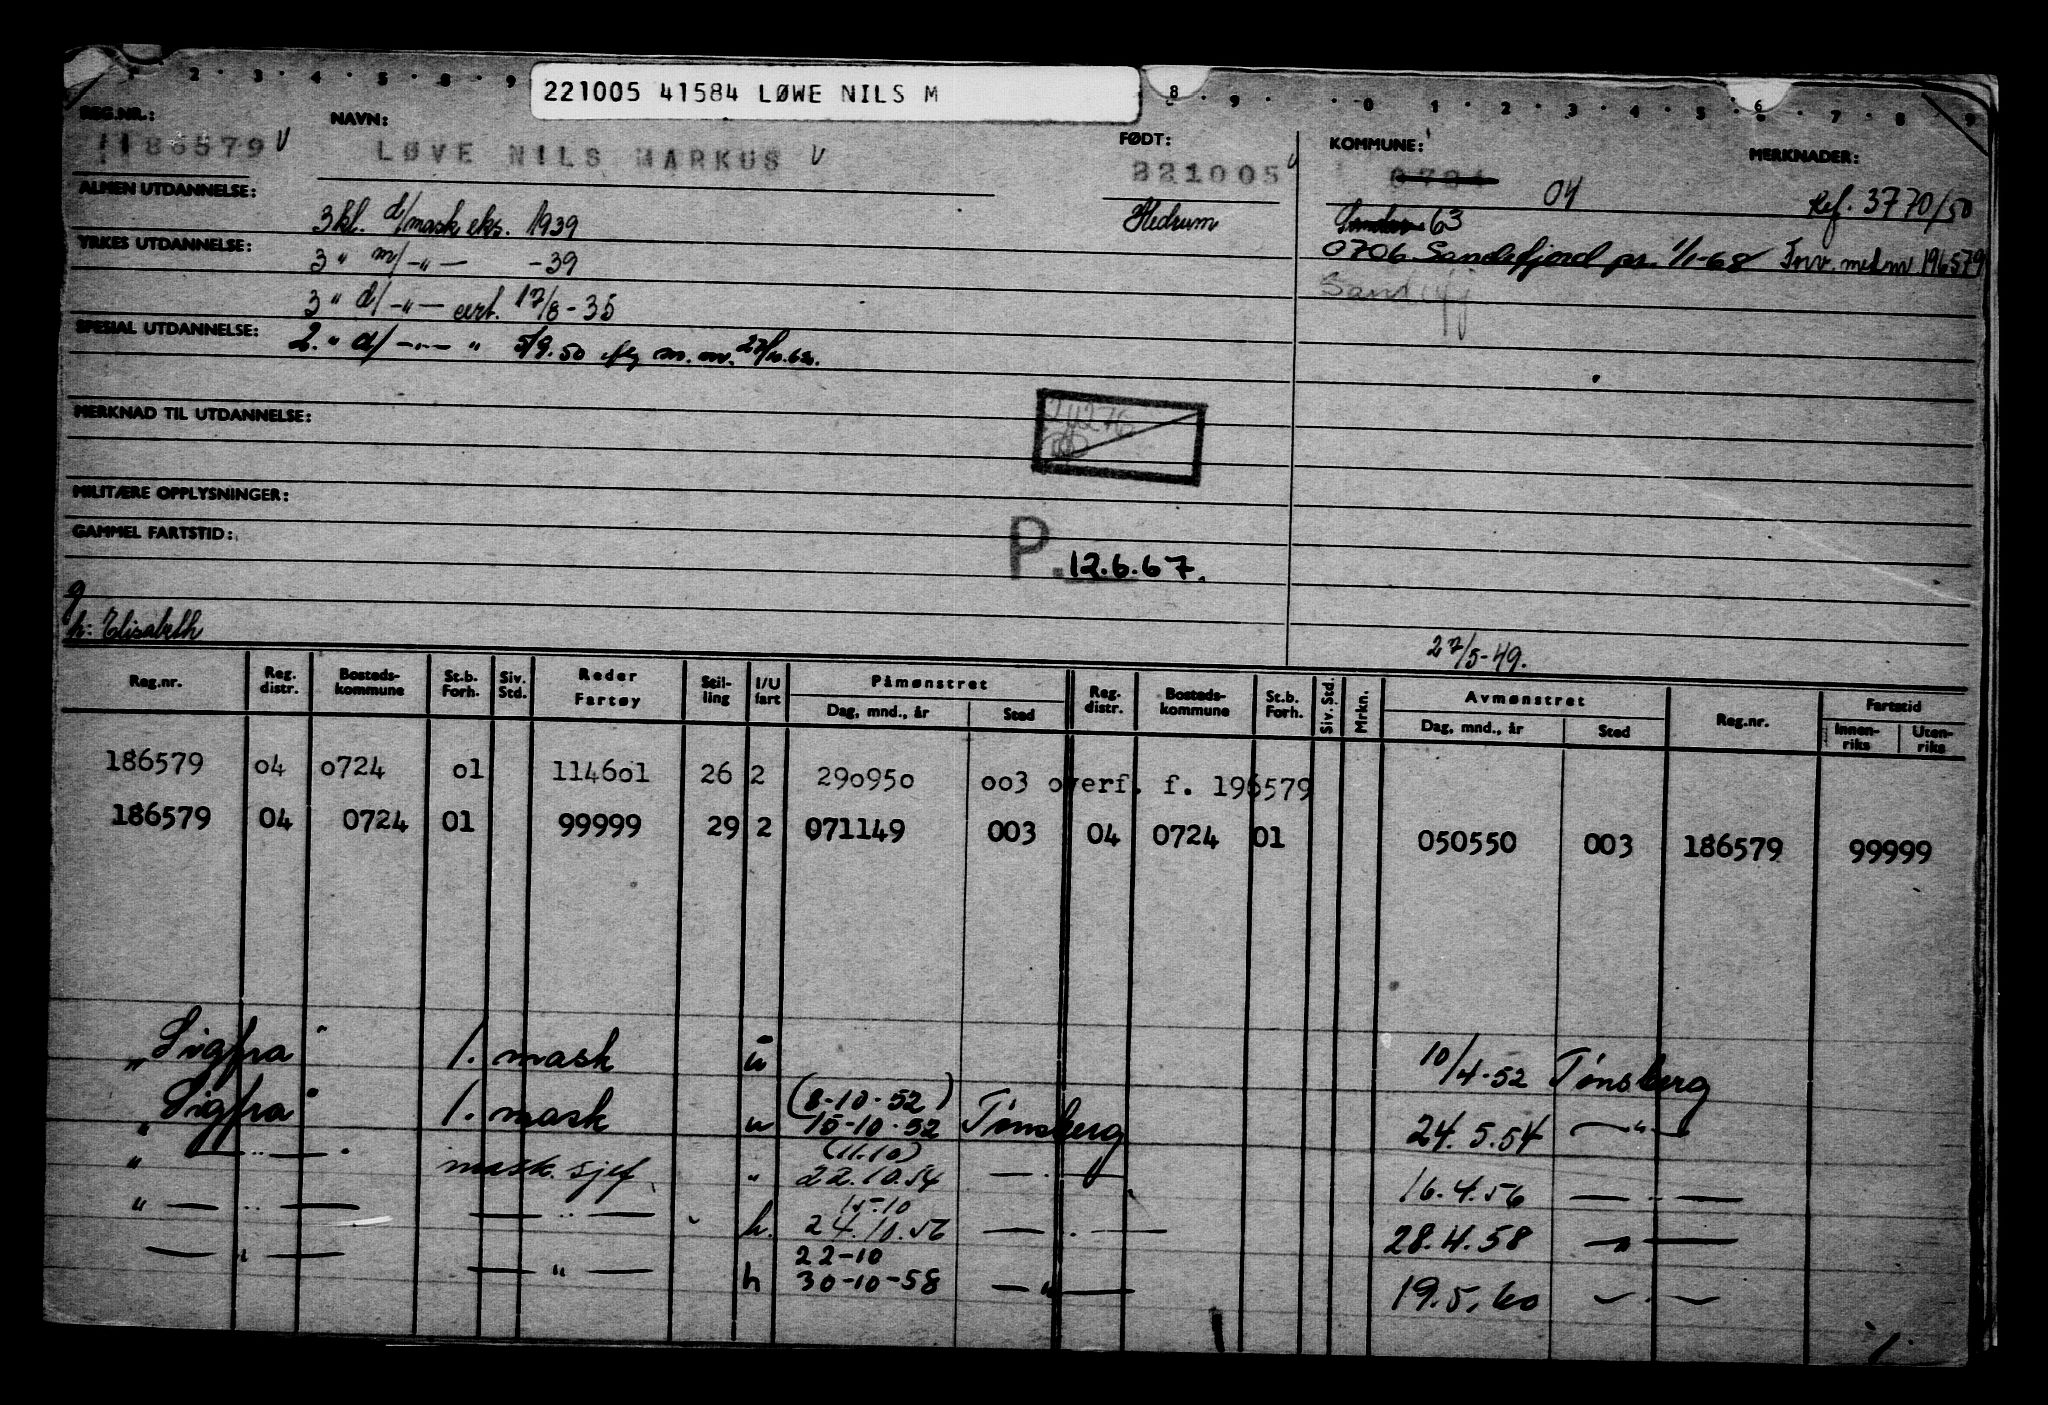 221005 41584 LØWE NILS M
1 2 3 4 5 8 9 8 9 0 1 2 3 4 5 6 7 8 9
REG.NR.: NAVN: FØDT: KOMMUNE: MERKNADER:
186579 V LØVE NILS MARKUS V 221005 V 0724 04 Ref. 3770/50
ALMEN UTDANNELSE: 3 kl. d/mask eks. 1939 Hedrum 63
YRKES UTDANNELSE: 3 " m/ -"- -39 0706 Sandefjord pr. 1/1-68 Forv. med nr 196579
3 " d/ -"- cert. 17/8-35 Sandefj
SPESIAL UTDANNELSE: 2. " d/ -"- " 5/9.50
MERKNAD TIL UTDANNELSE:
MILITÆRE OPPLYSNINGER:
GAMMEL FARTSTID:
P. 12.6.67.
g
h: Elisabeth
27/5-49.
Reg.nr. Reg. distr. Bosteds-kommune St.b. Forh. Siv. Std. Reder Fartøy Stil-ling I/U fart Påmønstret Dag, mnd., år Sted Reg. distr. Bosteds-kommune St.b. Forh. Siv. Std. Mrkn. Avmønstret Dag, mnd., år Sted Reg.nr. Fartstid Innen-riks Uten-riks
186579 o4 o724 o1 1146o1 26 2 29o95o oo3 overf. f. 196579
186579 04 0724 01 99999 29 2 071149 003 04 0724 01 050550 003 186579 99999
"Sigfra" 1. mask u 10/4-52 Tønsberg
"Sigfra" 1. mask u (8-10-52) 15-10-52 Tønsberg 24.5.54 —"—
" —"— " mask.sjef " (11.10) 22.10.54 —"— 16.4.56 —"—
" —"— —"— h. 15-10 24.10.56 —"— 28.4.58 —"—
—"— —"— h 22-10 30-10-58 —"— 19.5.60 —"—